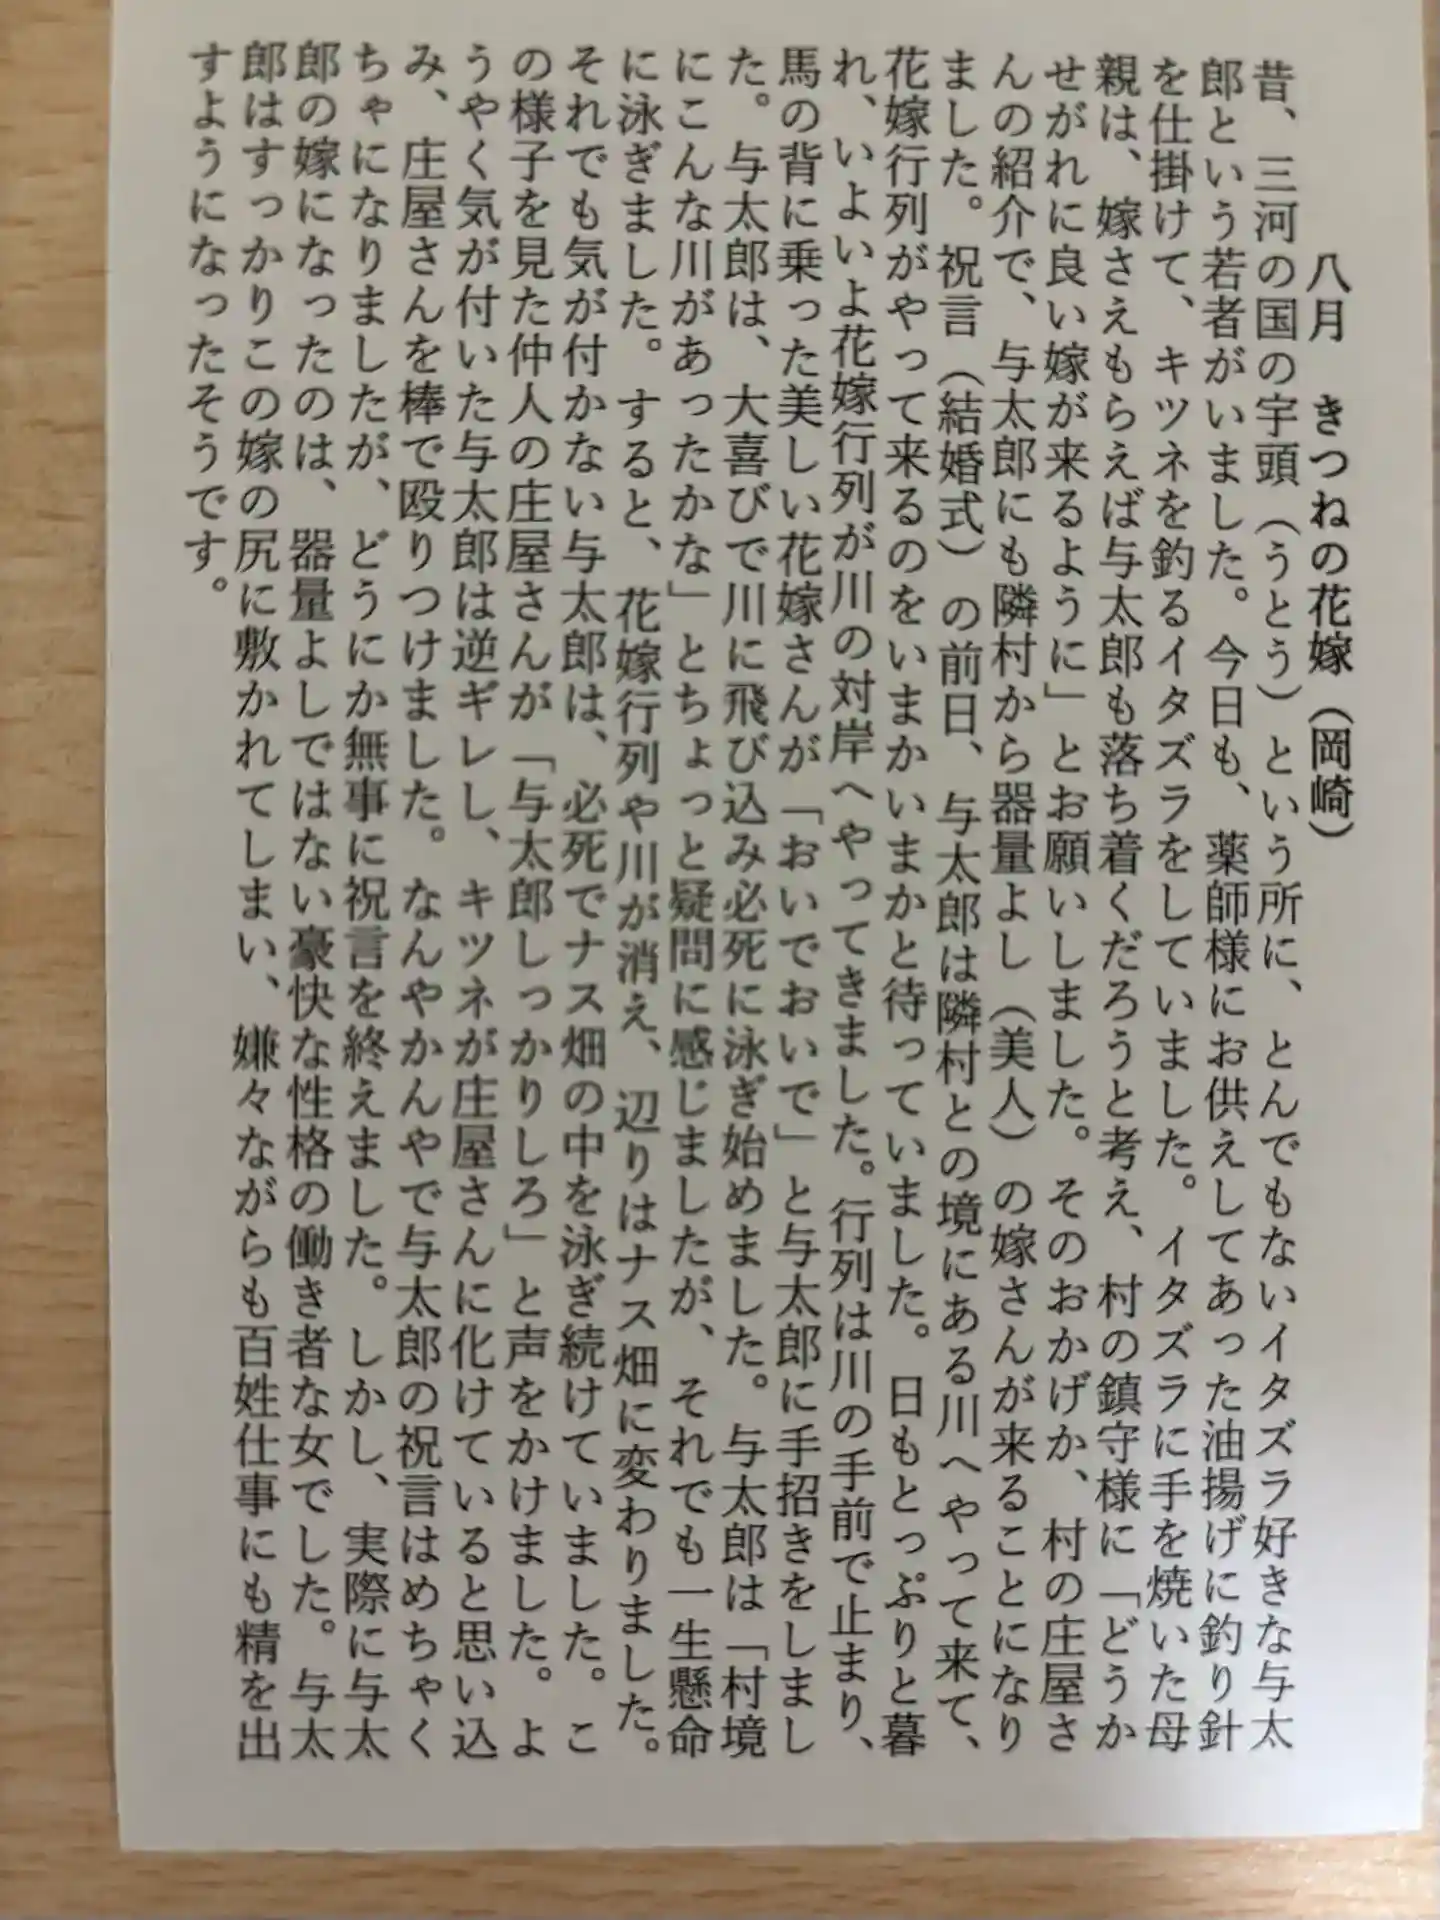 八月　きつねの花嫁（岡崎）
昔、三河の国の宇頭（うとう）という所に、とんでもないイタズラ好きな与太
郎という若者がいました。今日も、薬師様にお供えしてあった油揚げに釣り針
を仕掛けて、キツネを釣るイタズラをしていました。イタズラに手を焼いた母
親は、嫁さえもらえば与太郎も落ち着くだろうと考え、村の鎮守様に「どうか
せがれに良い嫁が来るように」とお願いしました。そのおかげか、村の庄屋さ
んの紹介で、与太郎にも隣村から器量よし（美人）の嫁さんが来ることになり
ました。祝言（結婚式）の前日、与太郎は隣村との境にある川へやって来て、
花嫁行列がやって来るのをいまかいまかと待っていました。日もとっぷりと暮
れ、いよいよ花嫁行列が川の対岸へやってきました。行列は川の手前で止まり、
馬の背に乗った美しい花嫁さんが「おいでおいで」と与太郎に手招きをしまし
た。与太郎は、大喜びで川に飛び込み必死に泳ぎ始めました。与太郎は「村境
にこんな川があったかな」とちょっと疑問に感じましたが、それでも一生懸命
に泳ぎました。すると、花嫁行列や川が消え、辺りはナス畑に変わりました。
それでも気が付かない与太郎は、必死でナス畑の中を泳ぎ続けていました。こ
の様子を見た仲人の庄屋さんが「与太郎しっかりしろ」と声をかけました。よ
うやく気が付いた与太郎は逆ギレし、キツネが庄屋さんに化けていると思い込
み、庄屋さんを棒で殴りつけました。なんやかんやで与太郎の祝言はめちゃく
ちゃになりましたが、どうにか無事に祝言を終えました。しかし、実際に与太
郎の嫁になったのは、器量よしではない豪快な性格の働き者な女でした。与太
郎はすっかりこの嫁の尻に敷かれてしまい、嫌々ながらも百姓仕事にも精を出
すようになったそうです。